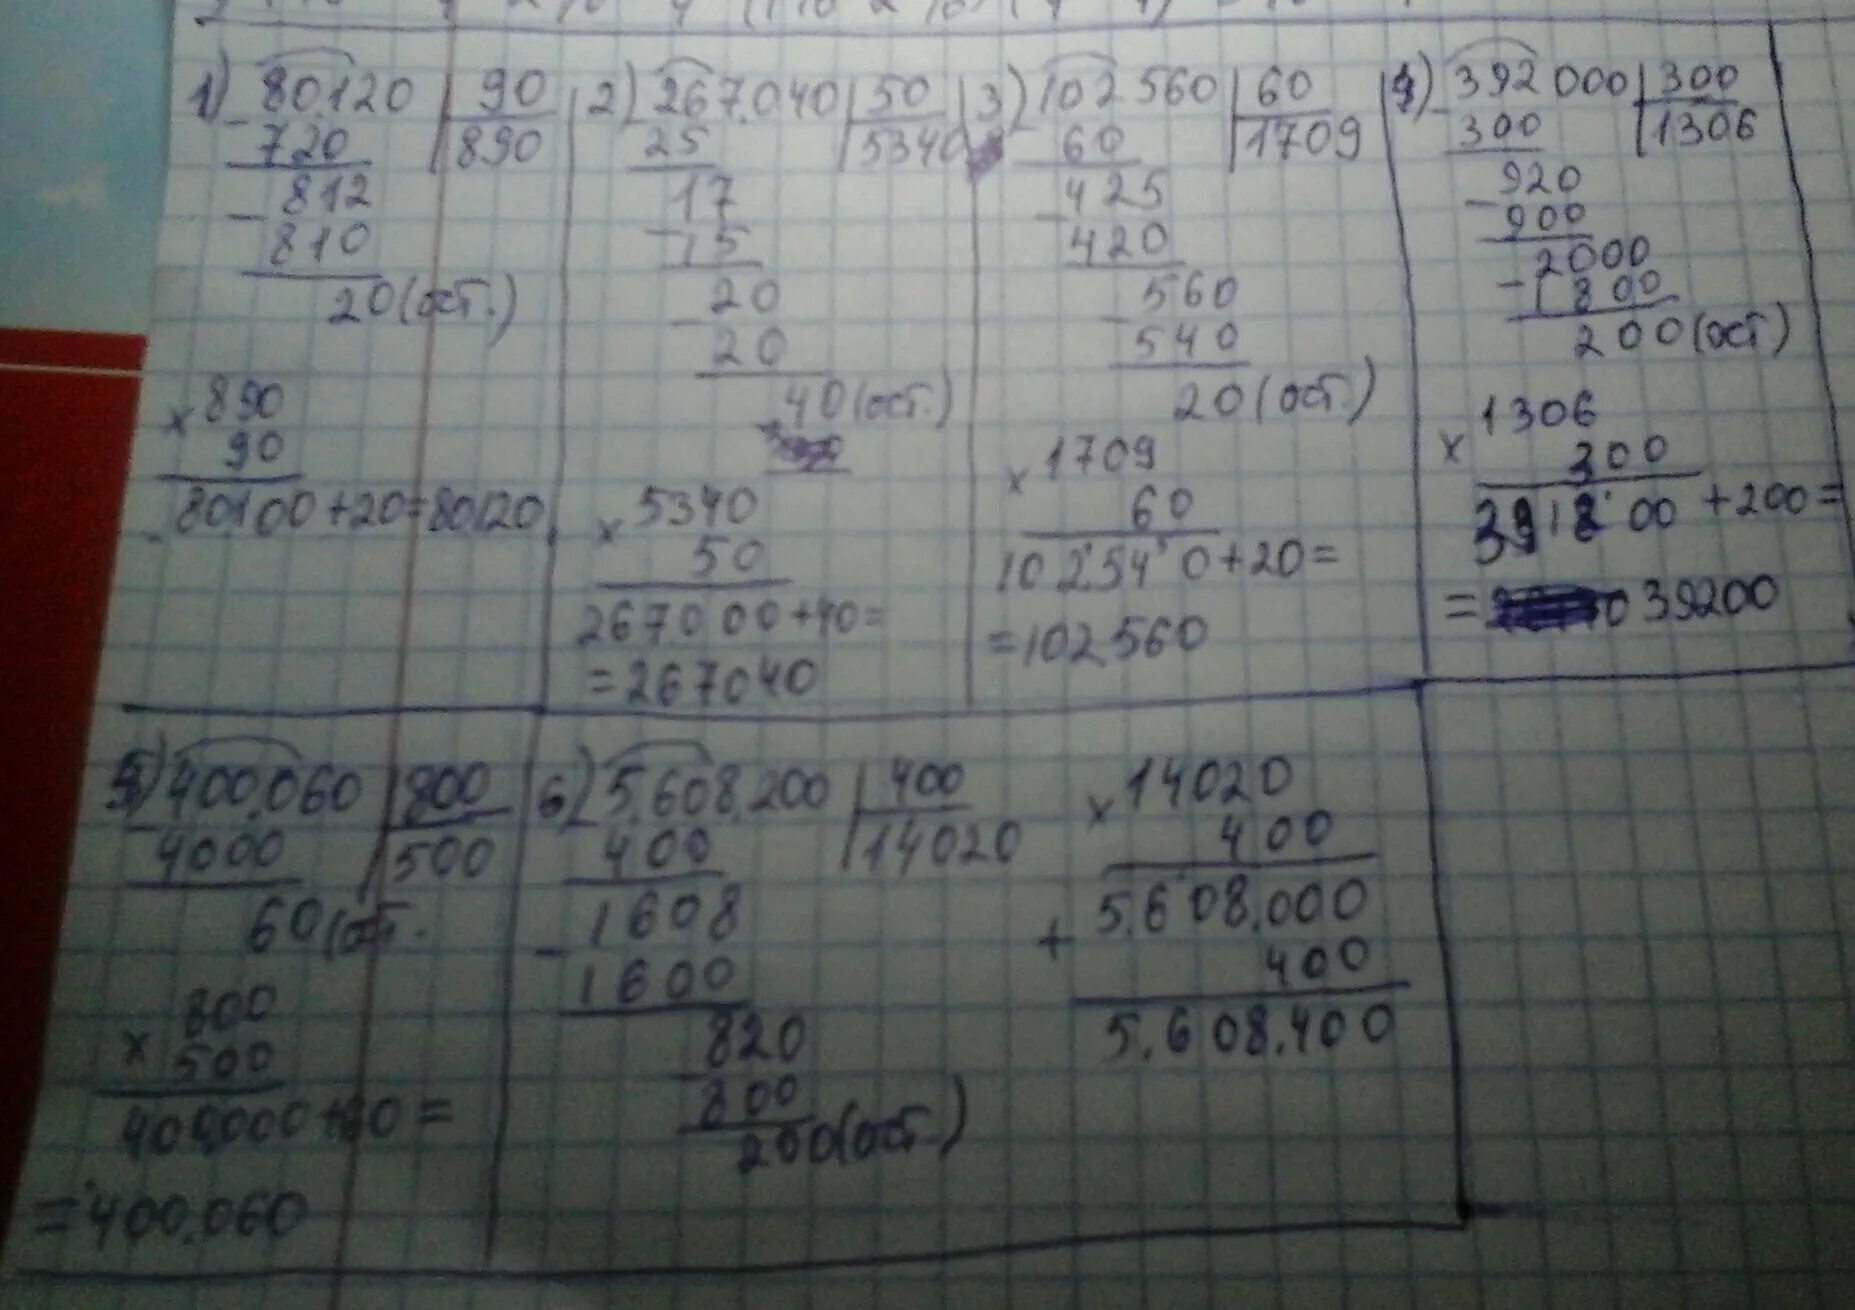 1) 80.120 | 90
- 720 | 890
812
- 810
20 (ост.)
× 890
90
80100 + 20 = 80120
2) 267.040 | 50
- 25 | 5340
17
- 15
20
- 20
40 (ост.)
× 5340
50
267.000 + 40 =
= 267040
3) 102560 | 60
- 60 | 1709
425
- 420
560
- 540
20 (ост.)
× 1709
60
102540 + 20 =
= 102560
4) 392000 | 300
- 300 | 1306
920
- 900
2000
- 1800
200 (ост)
× 1306
300
391800 + 200 =
= 39200
5) 400.060 | 800
- 4000 | 500
60 (ост.
× 800
500
400.000 + 60 =
= 400.060
6) 5.608.200 | 400
- 400 | 14020
1608
- 1600
820
- 800
200 (ост.)
× 14020
400
5.608.000
+ 400
5.608.400